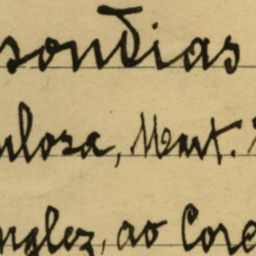 sondias
ulosa, Mart.
nglez, ao Core